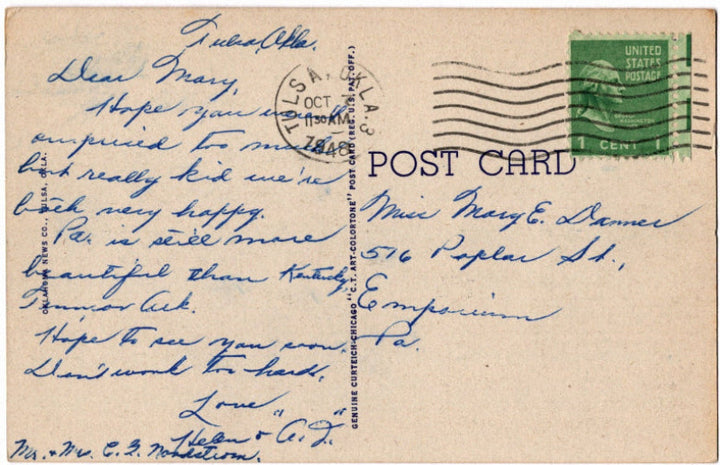 Tulsa, Okla.
Dear Mary,
Hope you won't
surprised too much
but really kid we're
both very happy.
Pa. is still more
beautiful than Kentucky,
Tenn or Ark.
Hope to see you soon.
Don't work too hard.
Love
"Helen & A.J."
Mr. & Mrs. C. G. Nordstrom.
OKLAHOMA NEWS CO., TULSA, OKLA.
GENUINE CURTEICH-CHICAGO "C.T. ART-COLORTONE" POST CARD (REG. U.S. PAT. OFF.)
TULSA, OKLA. 3
OCT
11 30 AM
1948
UNITED
STATES
POSTAGE
GEORGE
WASHINGTON
1 CENT 1
POST CARD
Miss Mary E. Danner
516 Poplar St.,
Emporium
Pa.